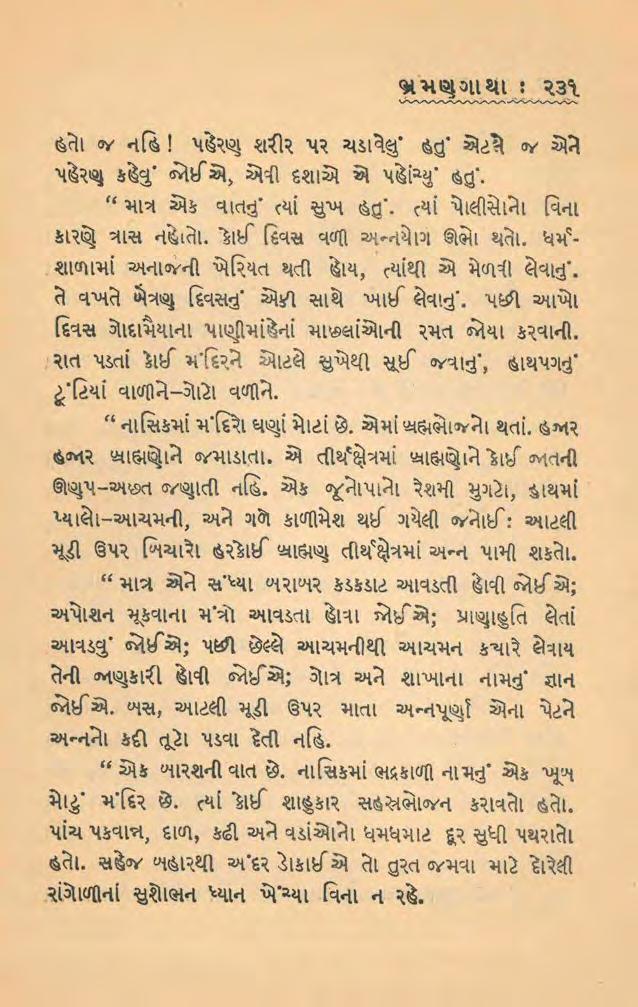 ભ્રમણગાથા : ૨૩૧
હતો જ નહિ! પહેરણ શરીર પર ચડાવેલું હતું એટલે જ એને
પહેરણ કહેવું જોઈએ, એવી દશાએ એ પહોંચ્યું હતું.
“ માત્ર એક વાતનું ત્યાં સુખ હતું. ત્યાં પોલીસોનો વિના
કારણે ત્રાસ નહોતો. કોઈ દિવસ વળી અન્નયોગ ઊભો થતો. ધર્મ-
શાળામાં અનાજની ખેરિયત થતી હોય, ત્યાંથી એ મેળવી લેવાનું.
તે વખતે બેત્રણ દિવસનું એકી સાથે ખાઈ લેવાનું. પછી આખો
દિવસ ગોદામૈયાના પાણીમાંહેનાં માછલાંઓની રમત જોયા કરવાની.
રાત પડતાં કોઈ મંદિરને ઓટલે સુખેથી સૂઈ જવાનું, હાથપગનું
ટૂંટિયાં વાળીને–ગોટો વળીને.
“ નાસિકમાં મંદિરો ઘણાં મોટાં છે. એમાં બ્રહ્મભોજનો થતાં. હજાર
હજાર બ્રાહ્મણોને જમાડાતા. એ તીર્થક્ષેત્રમાં બ્રાહ્મણોને કોઈ જાતની
ઊણપ–અછત જણાતી નહિ. એક જૂનોપાનો રેશમી મુગટો, હાથમાં
પ્યાલો–આચમની, અને ગળે કાળીમેશ થઈ ગયેલી જનોઈ : આટલી
મૂડી ઉપર બિચારો હરકોઈ બ્રાહ્મણ તીર્થક્ષેત્રમાં અન્ન પામી શકતો.
“ માત્ર એને સંધ્યા બરાબર કડકડાટ આવડતી હોવી જોઈએ;
અપોશન મૂકવાના મંત્રો આવડતા હોવા જોઈએ; પ્રાણાહુતિ લેતાં
આવડવું જોઈએ; પછી છેલ્લે આચમનીથી આચમન ક્યારે લેવાય
તેની જાણકારી હોવી જોઈએ; ગોત્ર અને શાખાના નામનું જ્ઞાન
જોઈએ. બસ, આટલી મૂડી ઉપર માતા અન્નપૂર્ણા એના પેટને
અન્નનો કદી તૂટો પડવા દેતી નહિ.
“ એક બારશની વાત છે. નાસિકમાં ભદ્રકાળી નામનું એક ખૂબ
મોટું મંદિર છે. ત્યાં કોઈ શાહુકાર સહસ્રભોજન કરાવતો હતો.
પાંચ પકવાન્ન, દાળ, કઢી અને વડાંઓનો ધમધમાટ દૂર સુધી પથરાતો
હતો. સહેજ બહારથી અંદર ડોકાઈએ તો તુરત જમવા માટે દોરેલી
રાંગોળીનાં સુશોભન ધ્યાન ખેંચ્યા વિના ન રહે.